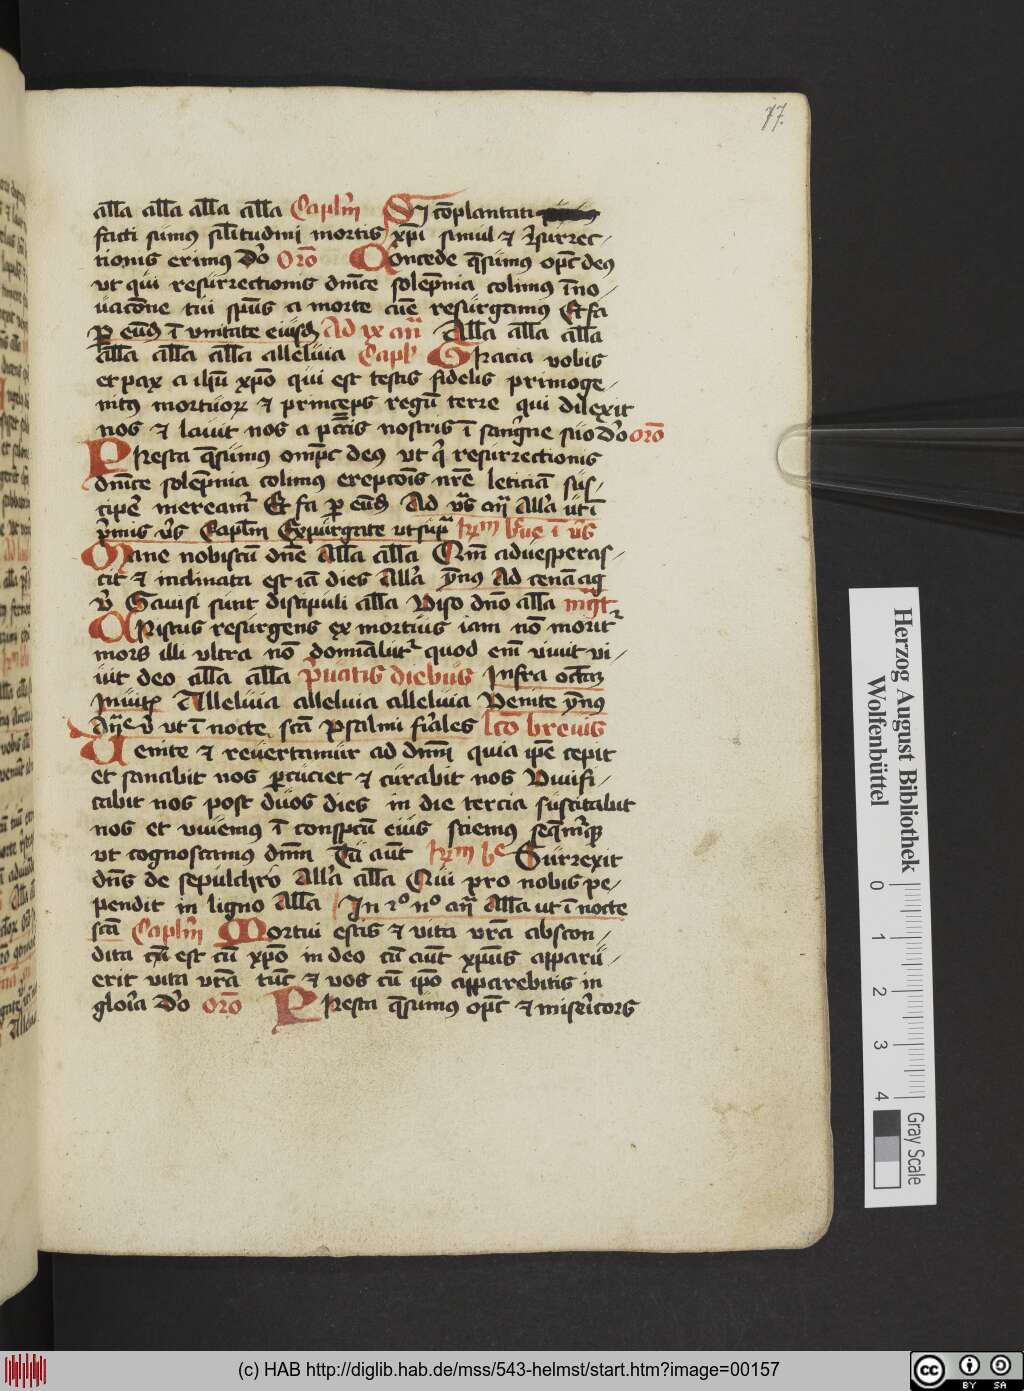 77.
all̄a all̄a all̄a all̄a Capl'm Si cōplantati
facti sumus sil̄itudini mortis xp̄i simul ⁊ r̄surrec⸗
tionis erimus dō Orō Concede q̄sumus op̄c deus
ut qui resurrectionis dn̄ice solēpnia colimus īno⸗
uacōne tui sp̄us a morte aīe resurgamus Et fa
ꝑ eūd ī vnitate eiusd Ad ix añ All̄a all̄a all̄a
all̄a all̄a all̄a alleluia Capl' Gracia vobis
et pax a ih̄u xp̄o qui est testis fidelis primoge⸗
nitus mortuoꝝ ⁊ princeps regū terre qui dilexit
nos ⁊ lauit nos a pctīs nostris ī sangwīne suo dō orō
Presta q̄sumus omp̄c deus ut qī resurrectionis
dn̄ice solēpnia colimus erepcōis nr̄e leticiā sus⸗
cipe meream' Et fa ꝑ eūd Ad vs̄ añ All'a ut ī
p̄mis vs̄ Capl'm Expurgate ut sup̄ hym
Mane nobiscū dn̄e All̄a all̄a Qm̄ aduesperas⸗
cit ⁊ inclinata est iā dies All'a
Gauisi sunt discipuli all̄a Viso dn̄o all̄a
Cristus resurgens ex mortuis iam nō morit'
mors illi vltra nō domīabit' quod em̄ viuit vi⸗
uit deo all̄a all̄a p̄uatis diebus Infra octaū
Inuit' Alleluia alleluia alleluia Venite
ut ī nocte sc̄a Psalmi fi'ales lc̄o breuis
Uenite ⁊ reuertamur ad dn̄m quia ip̄e cepit
et sanabit nos ꝑcuciet ⁊ curabit nos Viuifi⸗
cabit nos post duos dies in die tercia suscitabit
nos et viuemus ī conspectū eius sciemus seqm̄'qꝫ
ut cognoscamus dn̄m Tu aūt hym Surrexit
dn̄s de sepulchro All'a all̄a Qui pro nobis pe⸗
pendit in ligno All̄a In 2º nº añ All̄a ut ī nocte
sc̄a Capl'm Mortui estis ⁊ vita vr̄a abscon⸗
dita est cū xp̄o in deo cū aūt xp̄us apparu⸗
erit vita vr̄a tūc ⁊ vos cū ip̄o apparebitis in
gloīa dō orō Presta q̄sumus op̄c ⁊ misericors
Herzog August Bibliothek
Wolfenbüttel
0 1 2 3 4
Gray Scale
(c) HAB http://diglib.hab.de/mss/543-helmst/start.htm?image=00157
cc BY SA